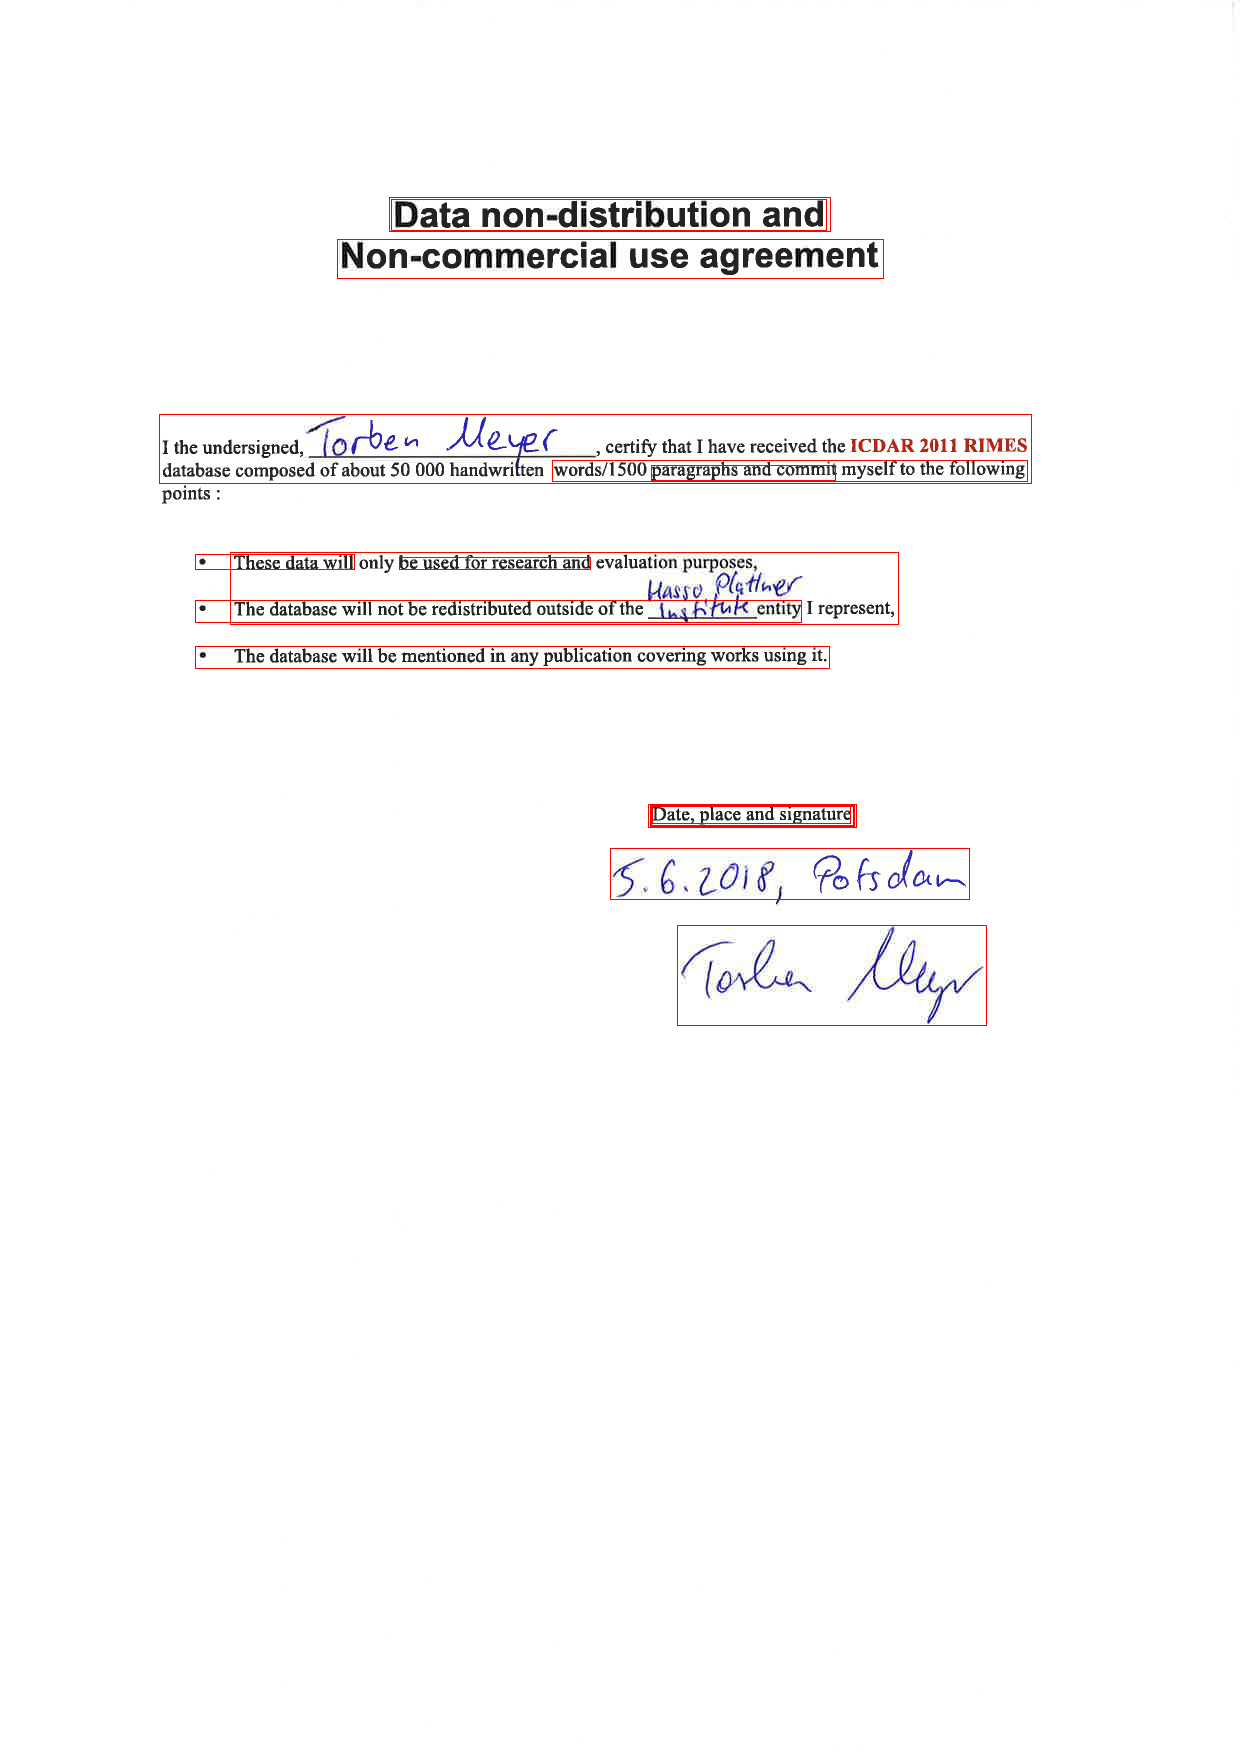 Data non-distribution and
Non-commercial use agreement
I the undersigned, Torben Meyer, certify that I have received the ICDAR 2011 RIMES
database composed of about 50 000 handwritten words/1500 paragraphs and commit myself to the following
points :
• These data will only be used for research and evaluation purposes,
Hasso Plattner
• The database will not be redistributed outside of the Institute entity I represent,
• The database will be mentioned in any publication covering works using it.
Date, place and signature
5.6.2018, Potsdam
Torben Meyer